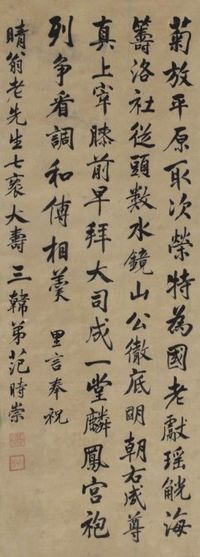 菊放平原取次榮特為國老獻瑤觥海
籌洛社從頭數水鏡山公徹底明朝右咸尊
真上宰膝前早拜大司成一堂麟鳳宮袍
列爭看調和傅相羹 里言奉祝
晴翁老先生七袠大壽 三韓弟范時崇